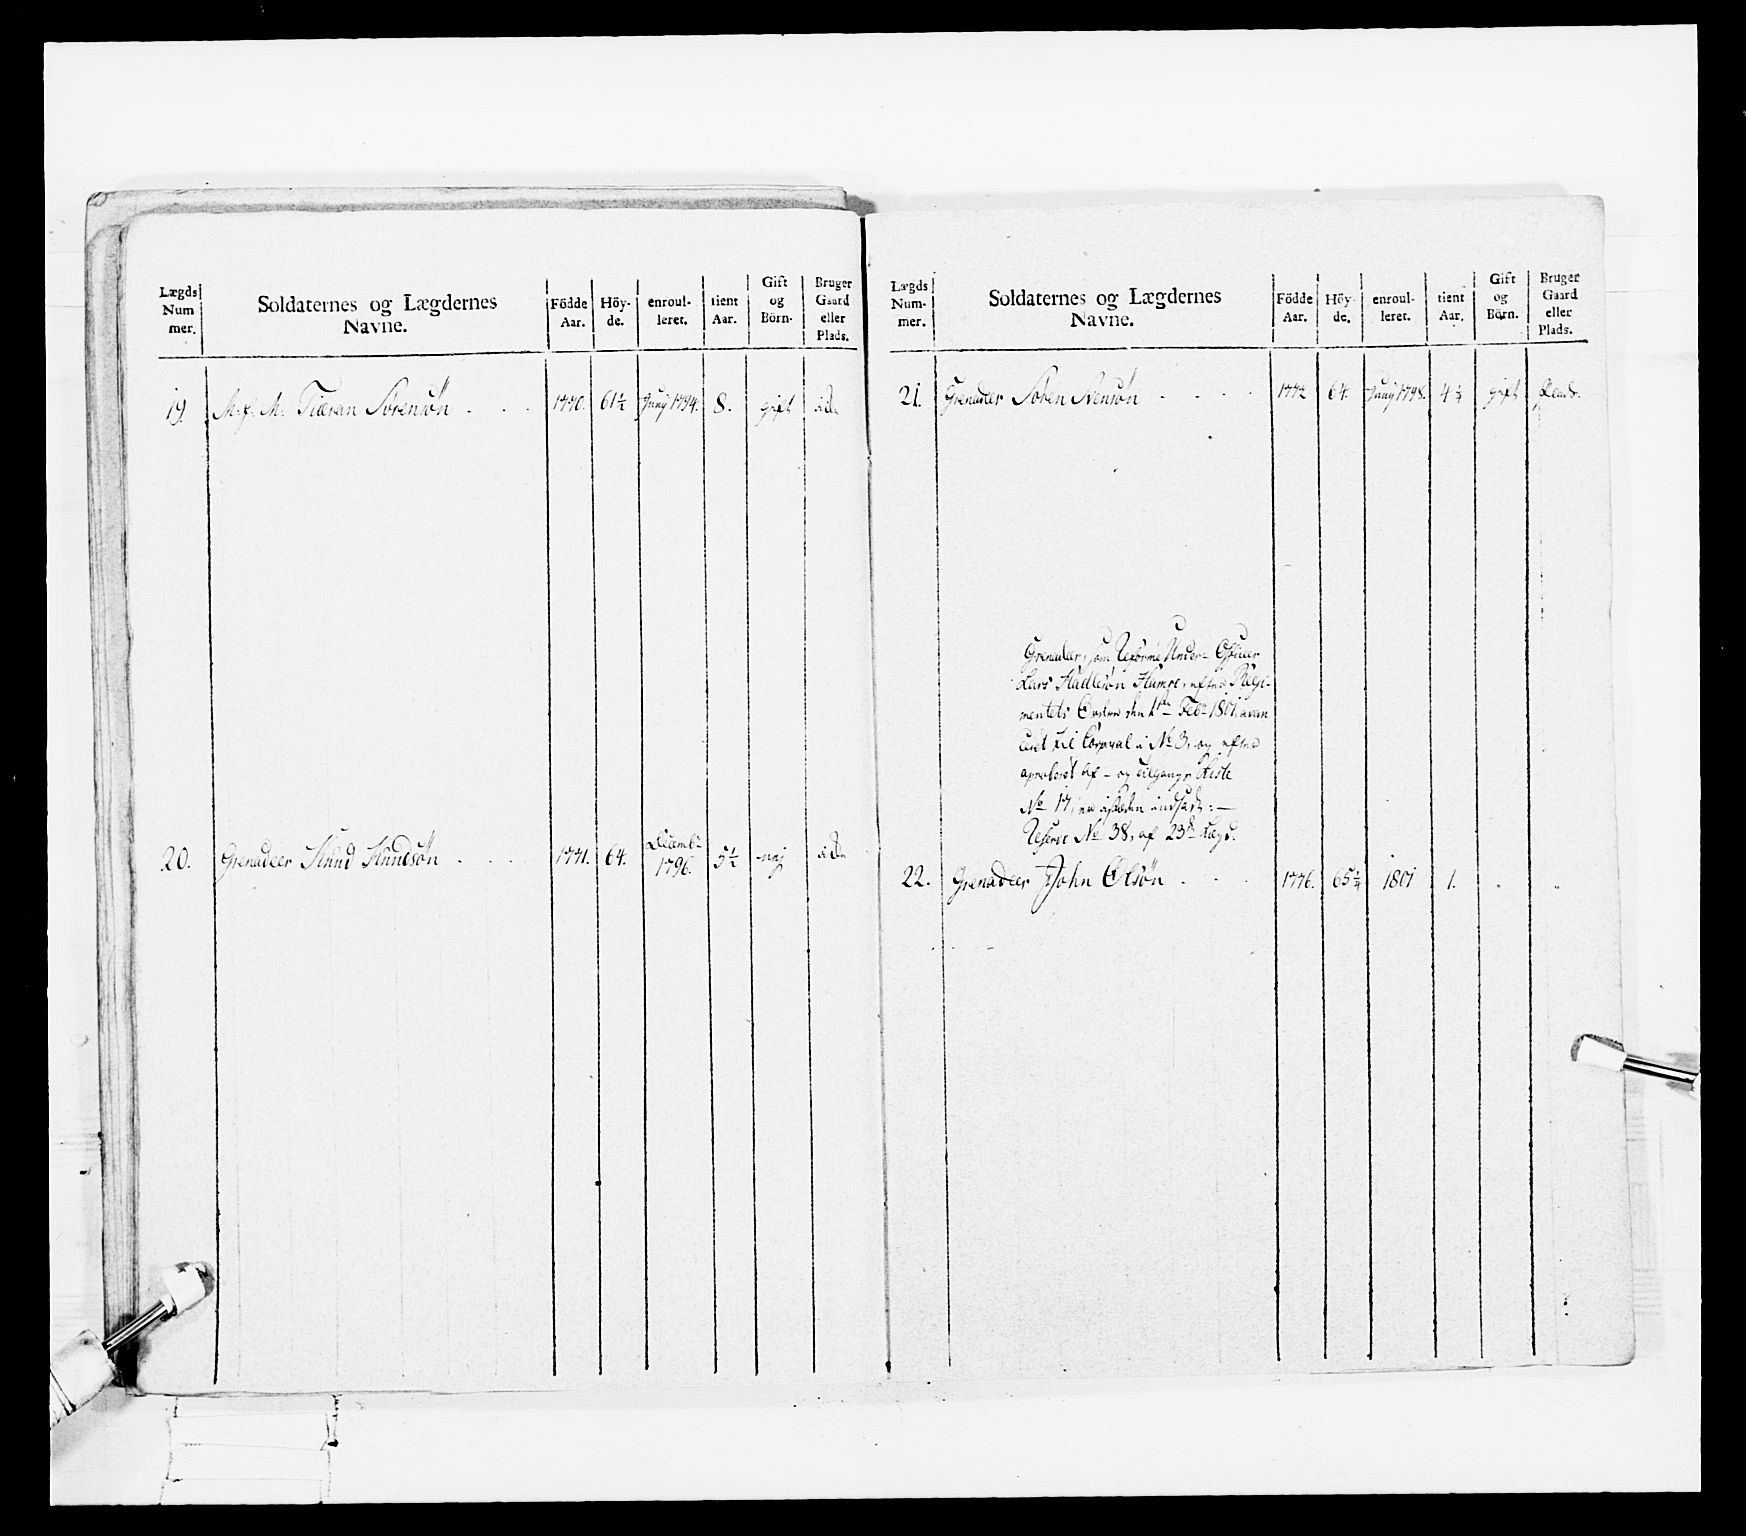 Lægds Num mer. | Soldaternes og Lægdernes Navne. | Födde Aar. | Höy- de. | enroul- leret. | tient Aar. | Gift og Börn. | Bruger Gaard eller Plads.
19. Sörensön . . . 1770. 61½ Junij 1794. 8. gift
20. Grenadeer Knud Knudsön . . . 1771. 64. Decembr 1796. 5½ nej
Lægds Num- mer. | Soldaternes og Lægdernes Navne. | Födde Aar. | Höy- de. | enroul- leret. | tient Aar. | Gift og Börn. | Bruger Gaard eller Plads.
21. Grenadeer Sören Svensön . . . . 1772 64. Junij 1798. gift Plads.
Grenadeer, som Under-Officeer
Lars Hamre, efter Regi-
mentets Ordre den Febr 1801. avan
ceret til Corporal i No 3. og efter
aproberet af- og tilgangs Liste
No 17, indsadt: —
Reserve No 38, af 23de Lægd.
22. Grenadeer John Olsön . . . 1776. 1801 1. " "